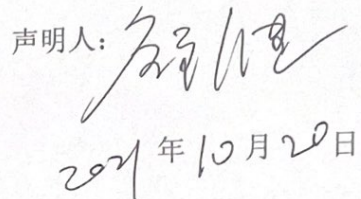 声明人：
2021年10月20日